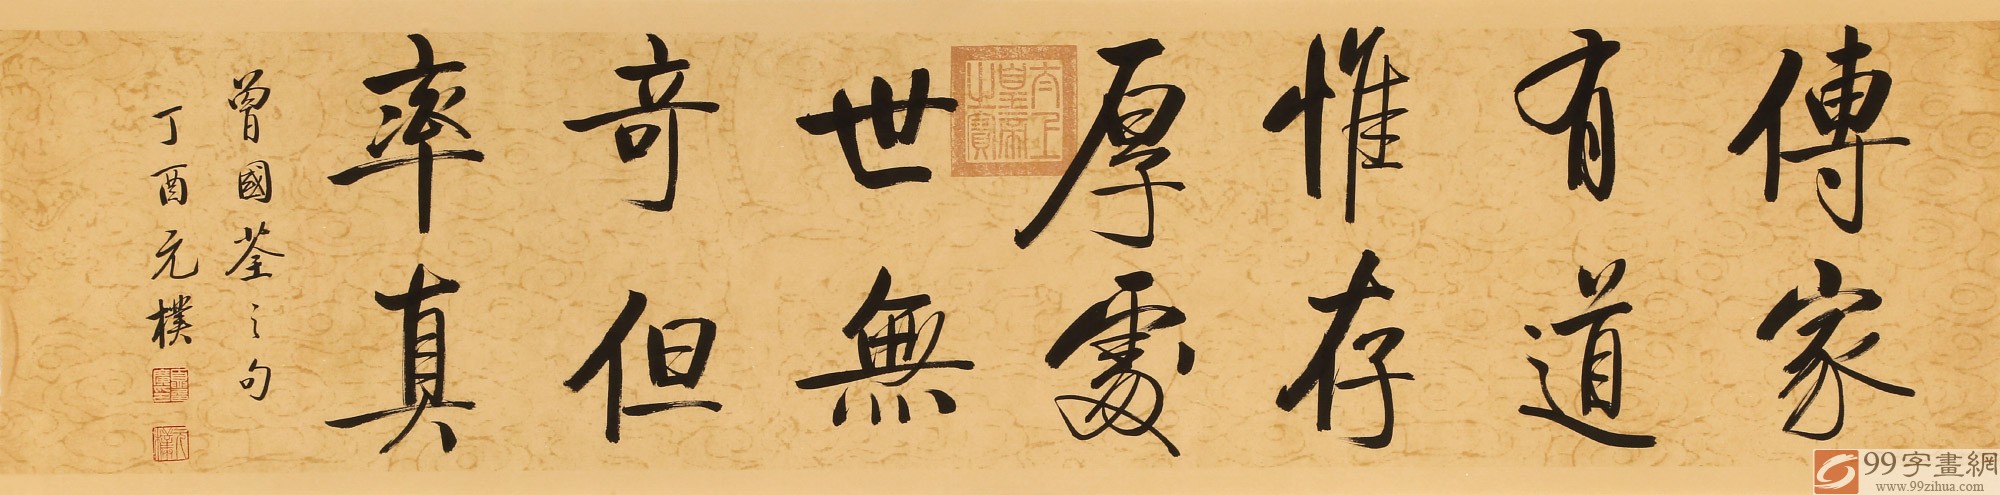 傳家
有道
惟存
厚處
世無
奇但
率真
曾國荃之句
丁酉元樸
太上皇帝之寶
元樸
99字畫網
www.99zihua.com